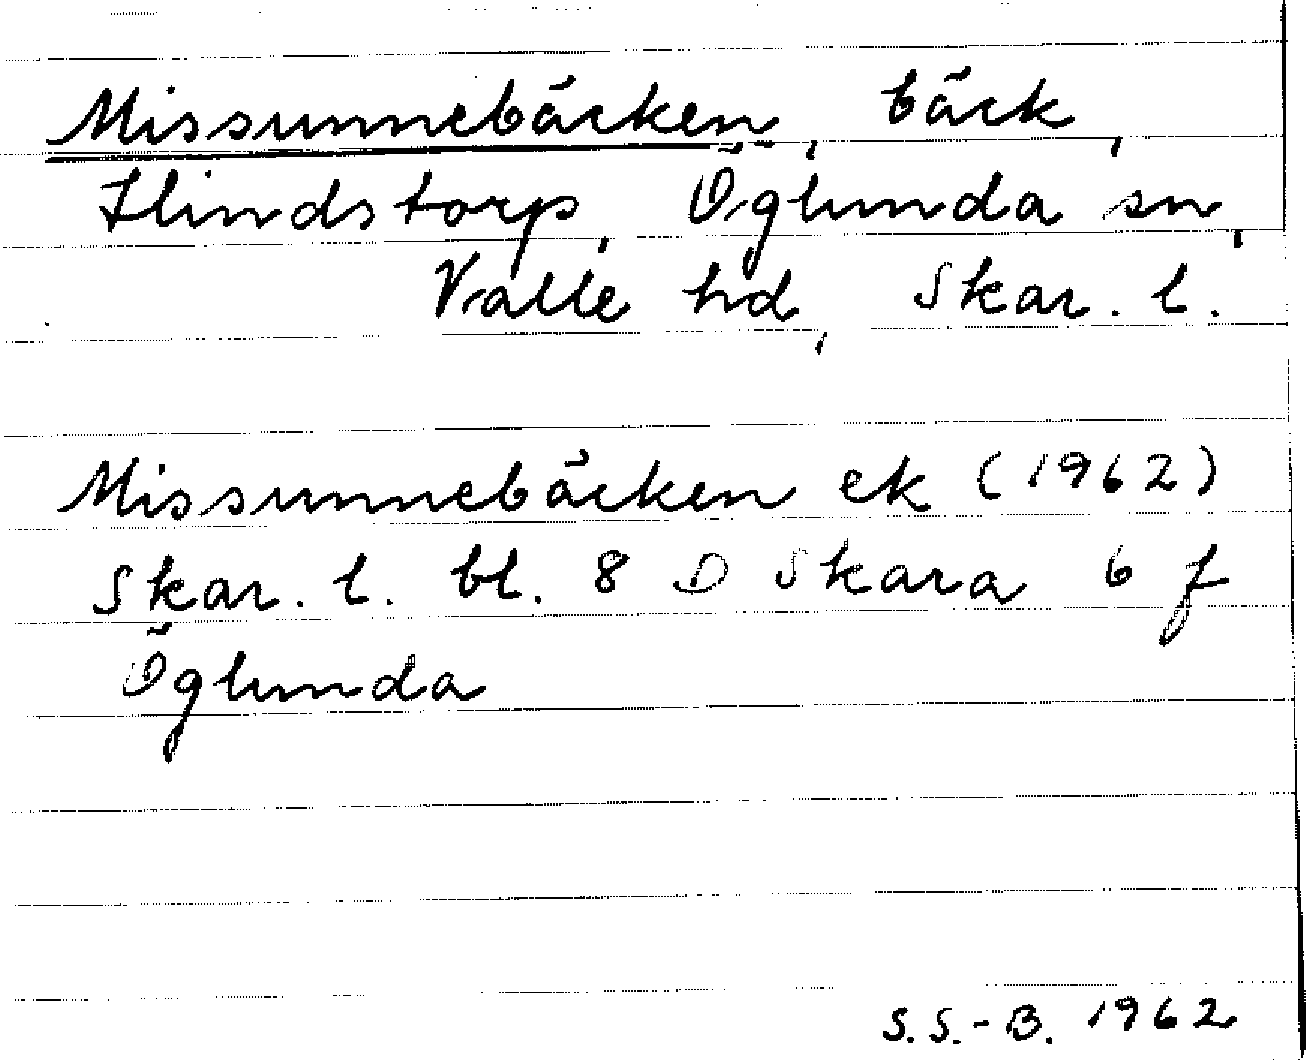 Missunnebäcken, bäck,
Hindstorp, Öglunda sn,
Valle hd, Skar. l.
Missunnebäcken ek (1962)
Skar. l. bl. 8 D Skara 6 f
Öglunda
S.S.-B. 1962